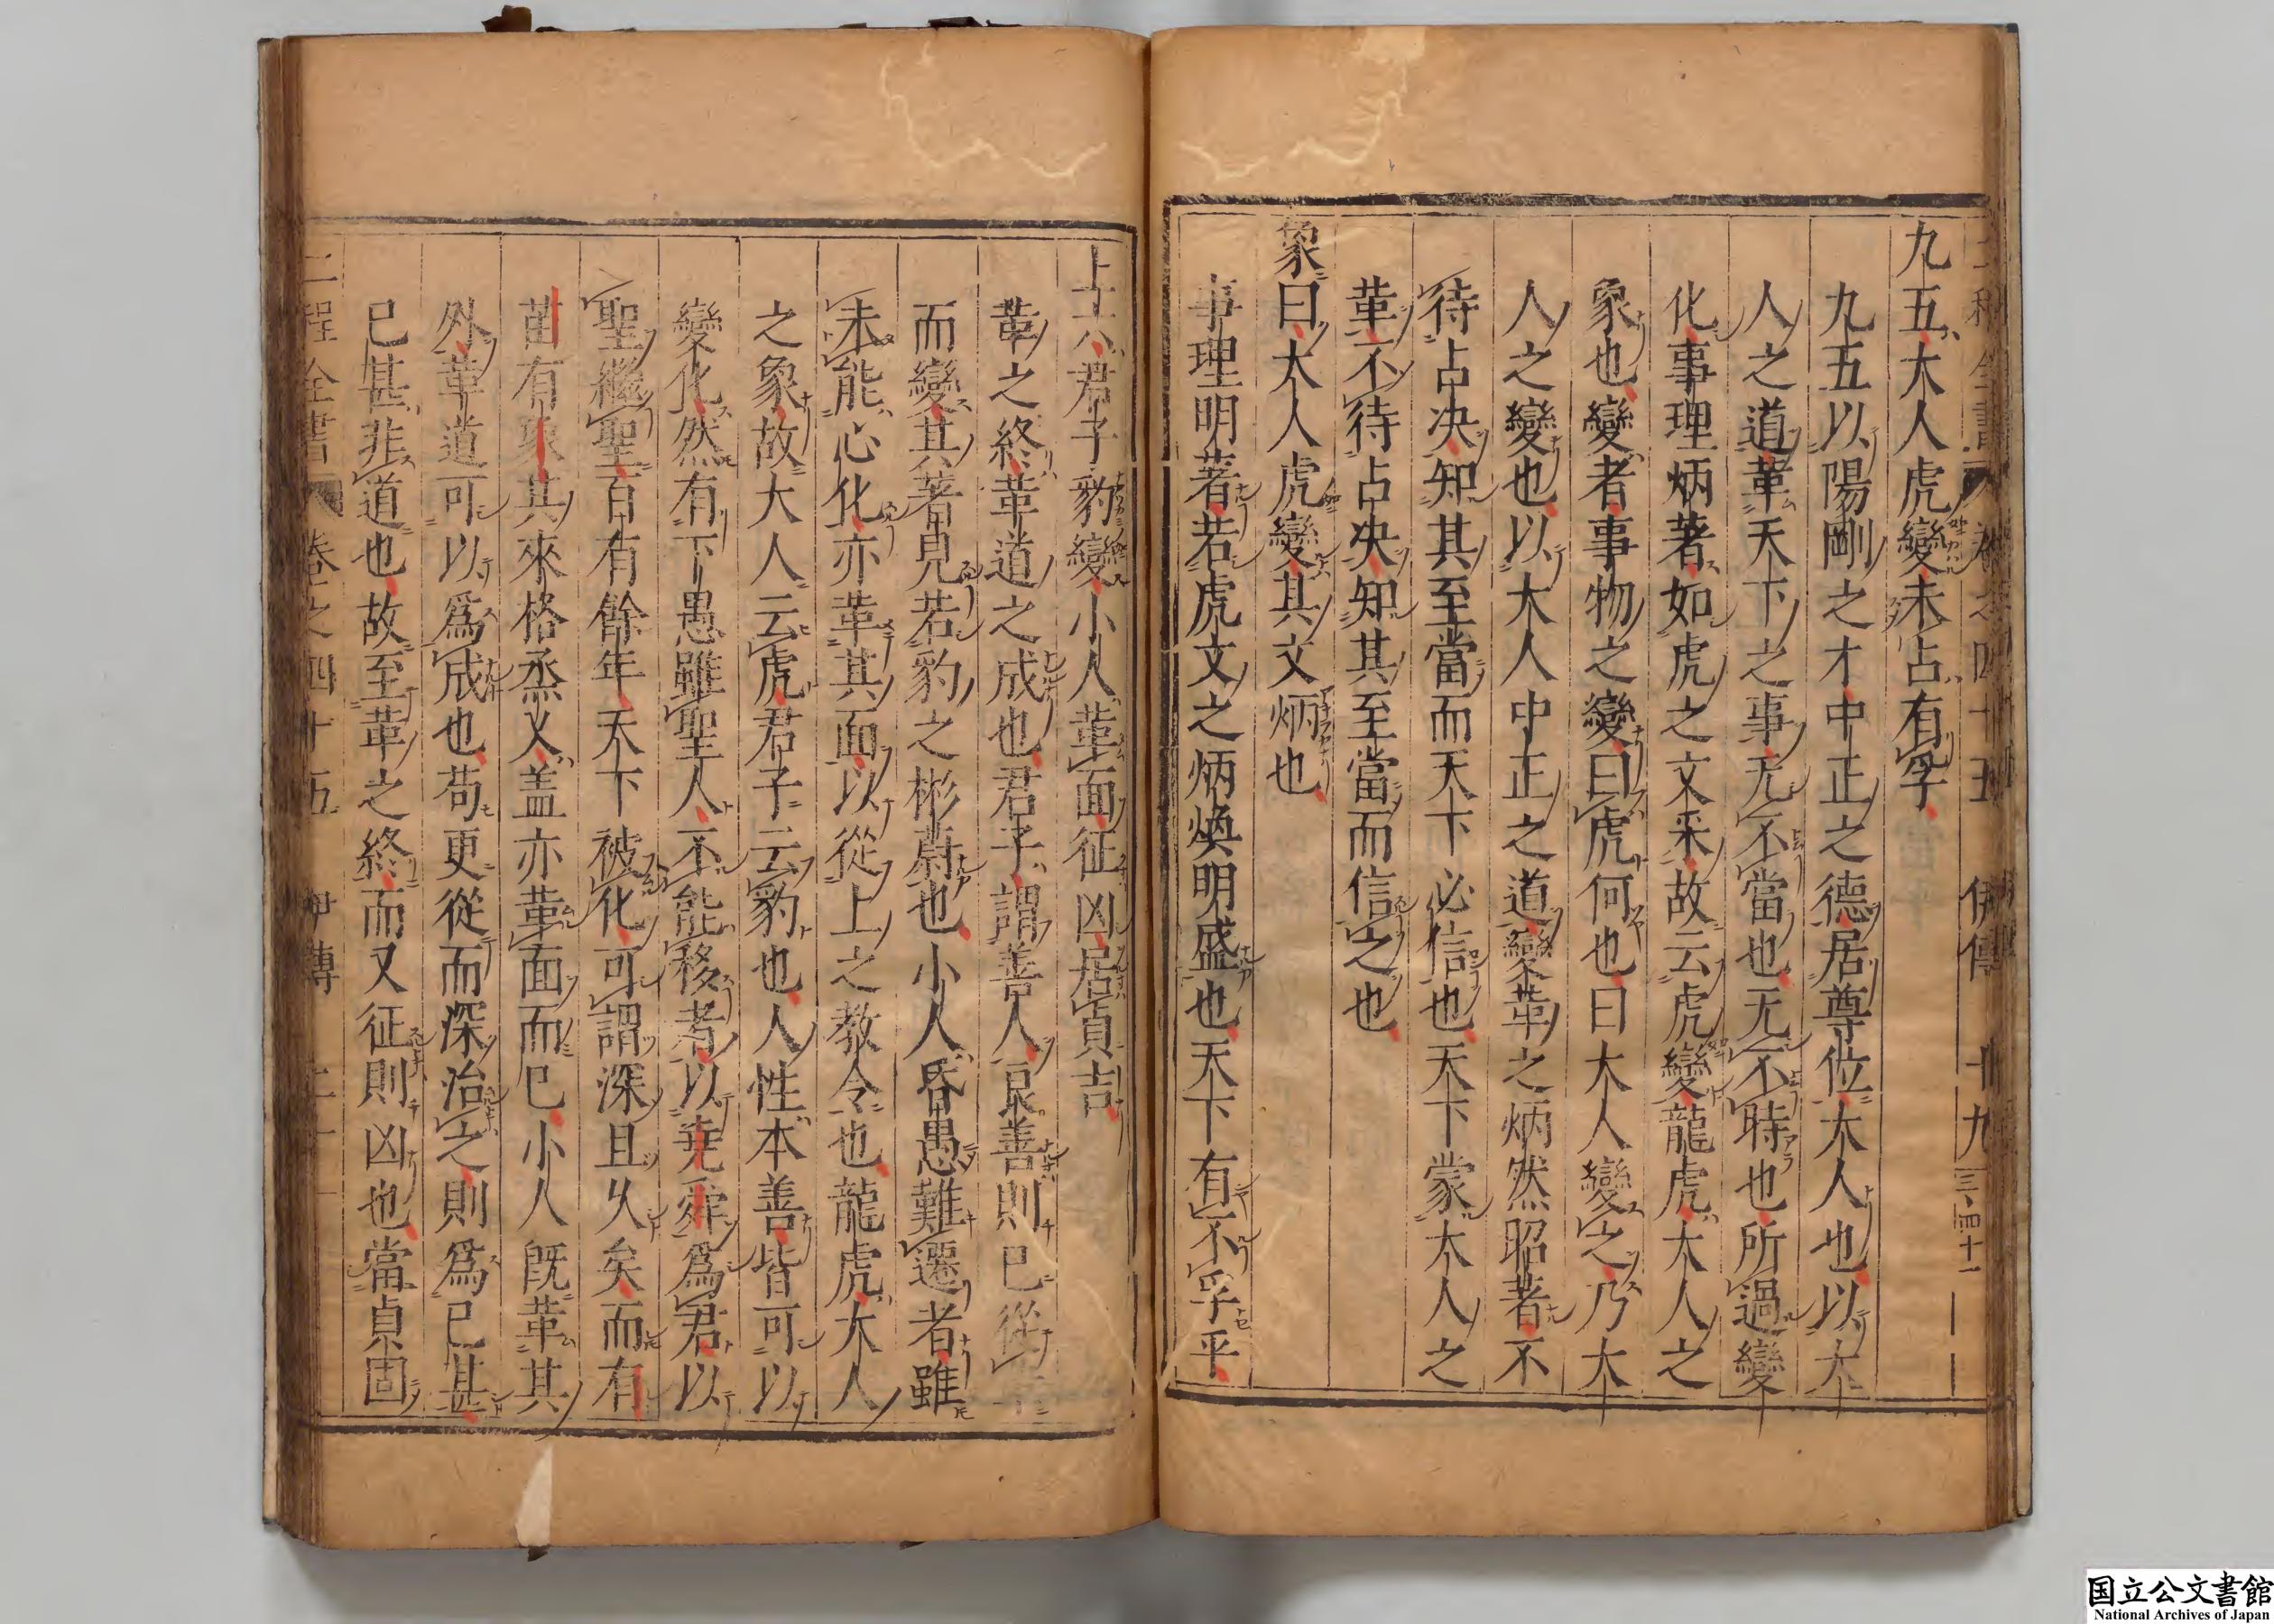 九五大人虎變未占有孚
九五以陽剛之才中正之德居尊位大人也以大
人之道革天下之事无不當也无不時也所過變
化事理炳著如虎之文采故云虎變龍虎大人之
象也變者事物之變曰虎何也曰大人變之乃大
人之變也以大人中正之道變革之炳然昭著不
待占決知其至當而天下必信也天下蒙大人之
革不待占決知其至當而信之也
象曰大人虎變其文炳也
事理明著若虎文之炳煥明盛也天下有不孚乎
上六君子豹變小人革面征凶居貞吉
革之終革道之成也君子謂善人良善則已從革
而變其著見若豹之彬蔚也小人昏愚難遷者雖
未能心化亦革其面以從上之教令也龍虎大人
之象故大人云虎君子云豹也人性本善皆可以
變化然有下愚雖聖人不能移者以堯舜爲君以
聖繼聖百有餘年天下被化可謂深且久矣而有
苗有象其來格烝乂盖亦革面而已小人旣革其
外革道可以爲成也苟更從而深治之則爲已甚
已甚非道也故至革之終而又征則凶也當貞固
二程全書 卷之四十五 伊傳
国立公文書館
National Archives of Japan